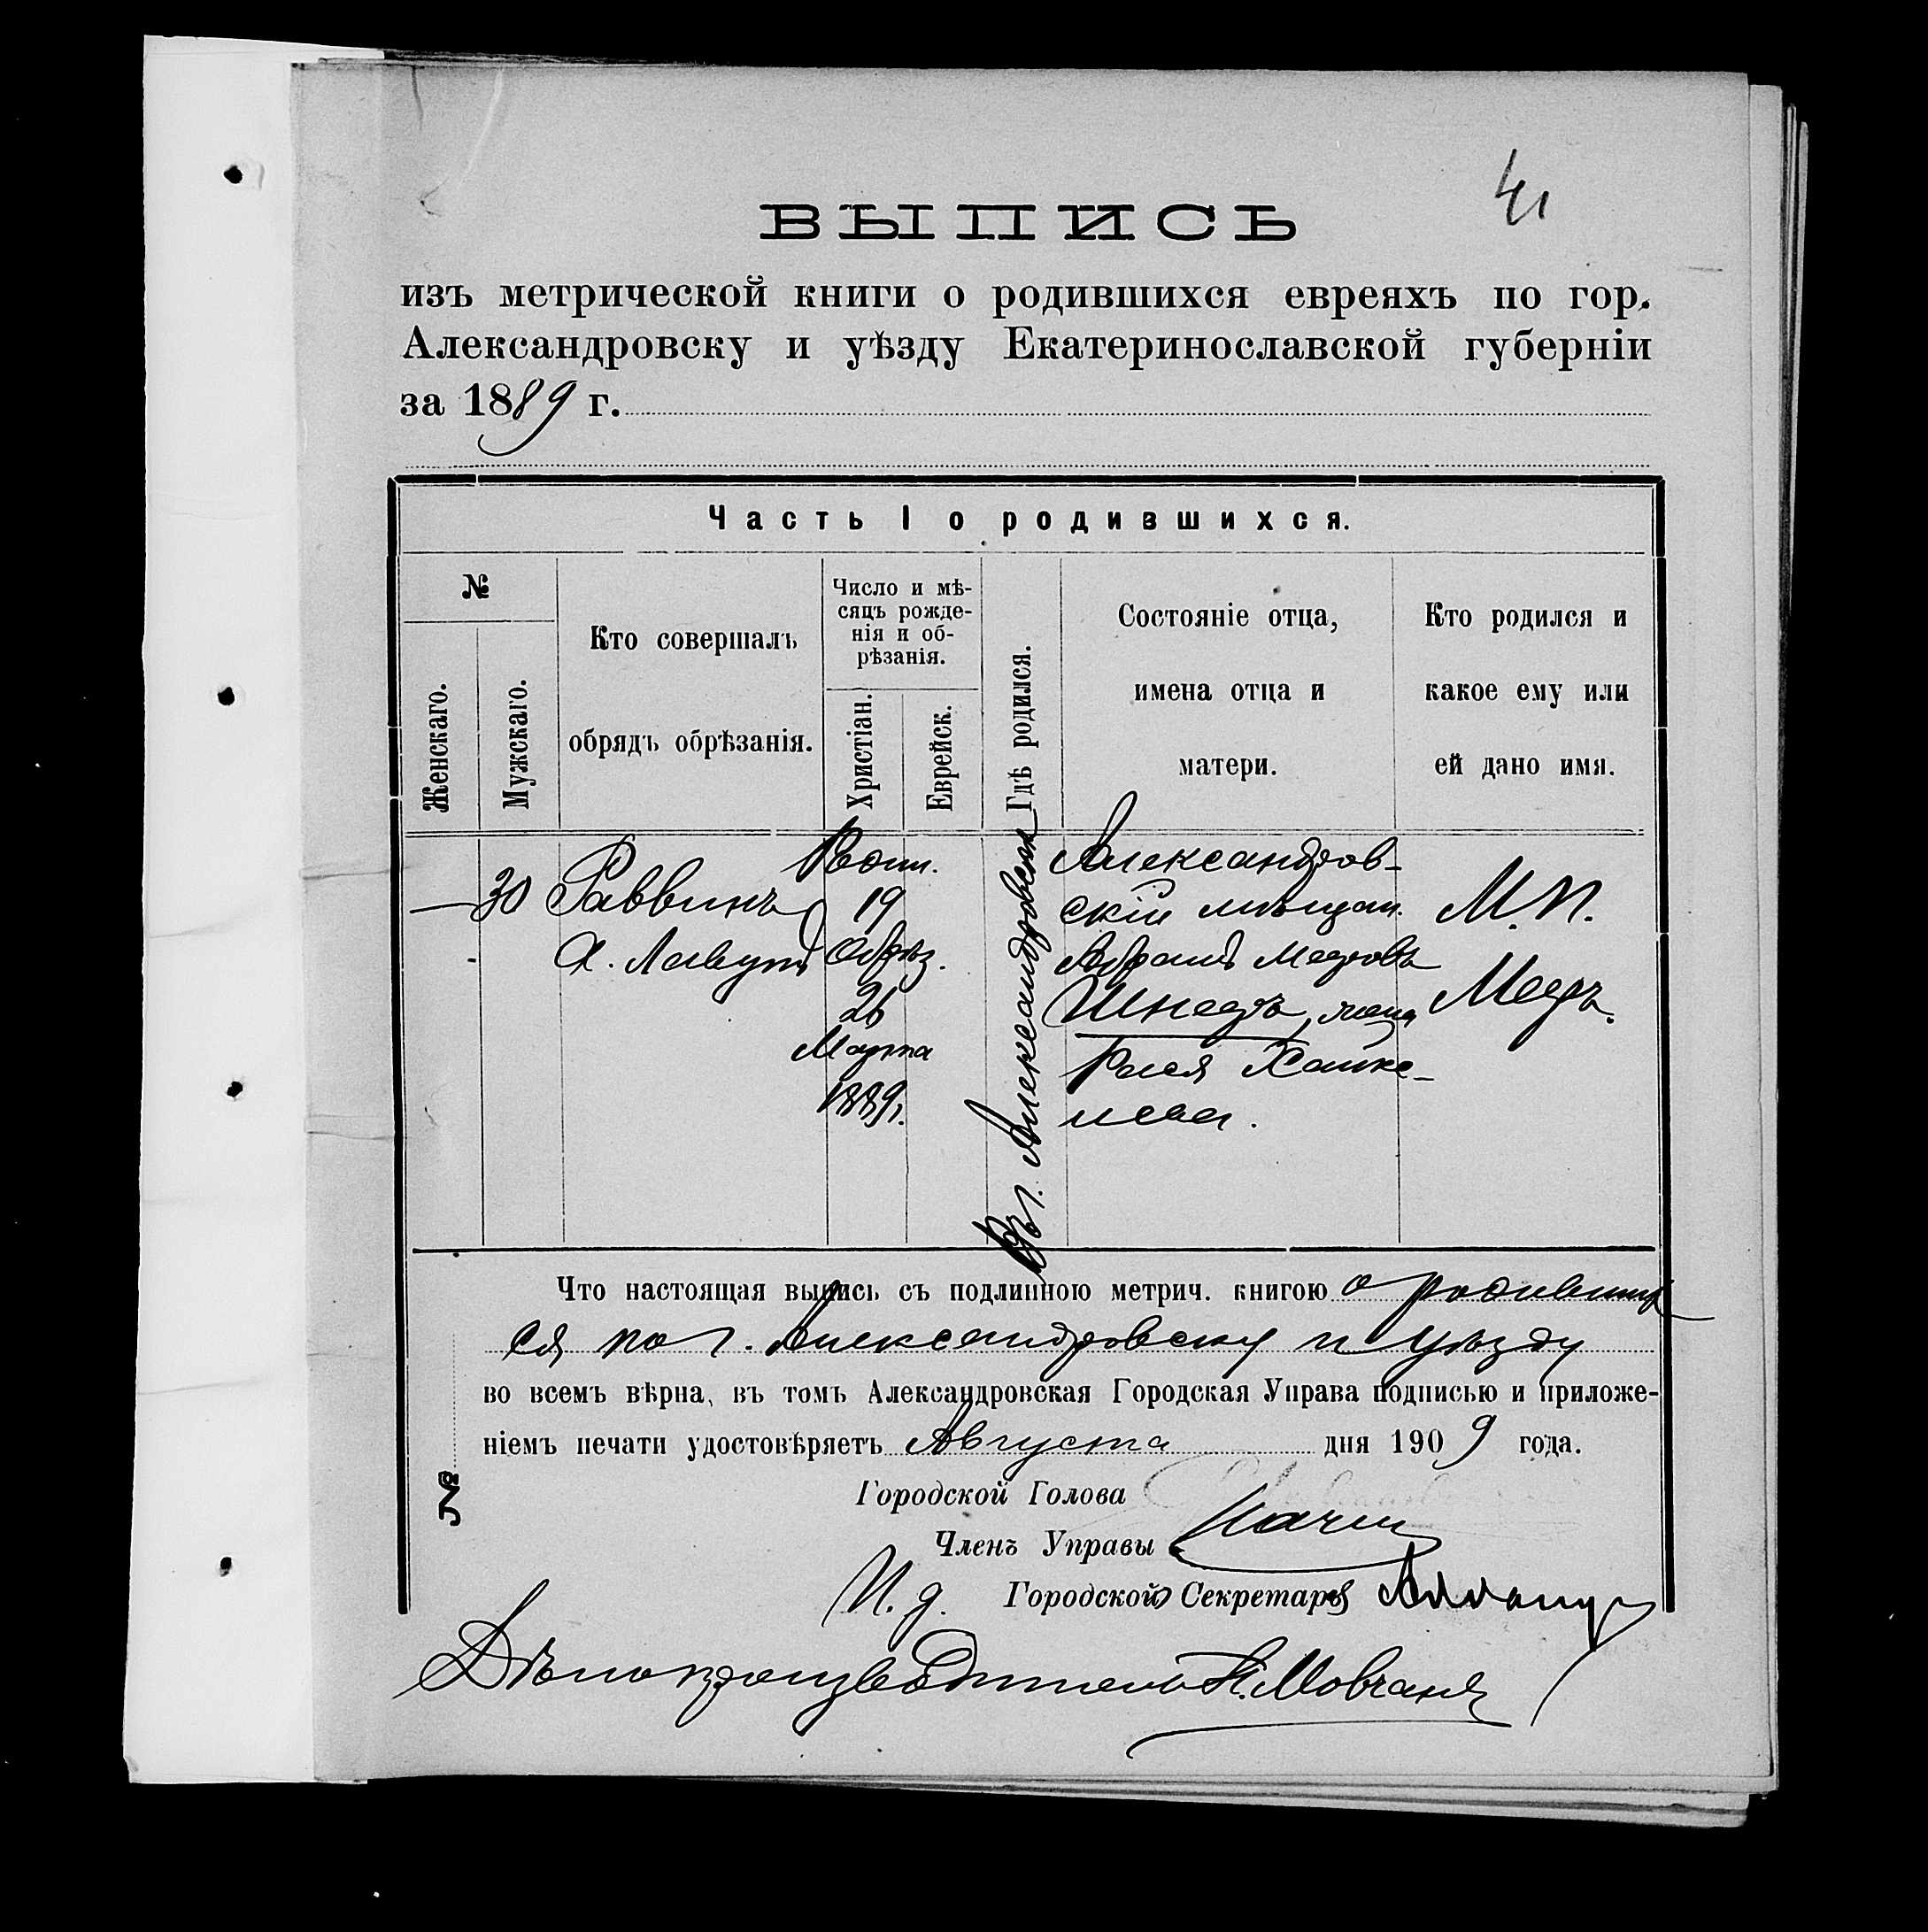 41
ВЫПИСЬ
изъ метрической книги о родившихся евреяхъ по гор.
Александровску и уѣзду Екатеринославской губерніи
за 1889 г.
Часть I о родившихся.
№
Женскаго.
Мужскаго.
Кто совершалъ
обрядъ обрѣзанія.
Число и мѣ-
сяцъ рожде-
нія и об-
рѣзанія.
Христіан.
Еврейск.
Гдѣ родился.
Состояніе отца,
имена отца и
матери.
Кто родился и
какое ему или
ей дано имя.
—
30
Раввинъ
Х. Лавутъ
Родил.
19
Обрѣз.
26
Марта
1889г.
Въ г. Александровскѣ
Александров-
скій мѣщан.
Абрамъ Мееровъ
Шнееръ, жена
Рися Хаике-
лева.
М. П.
Мееръ.
Что настоящая выпись съ подлинною метрич. книгою о родивших
ся по г. Александровску и уѣзду
во всемъ вѣрна, въ томъ Александровская Городская Управа подписью и приложе-
ніемъ печати удостовѣряетъ Августа дня 1909 года.
№
Городской Голова
Членъ Управы
И. д. Городской Секретарь
Дѣлопроизводитель Н. Мовчанъ